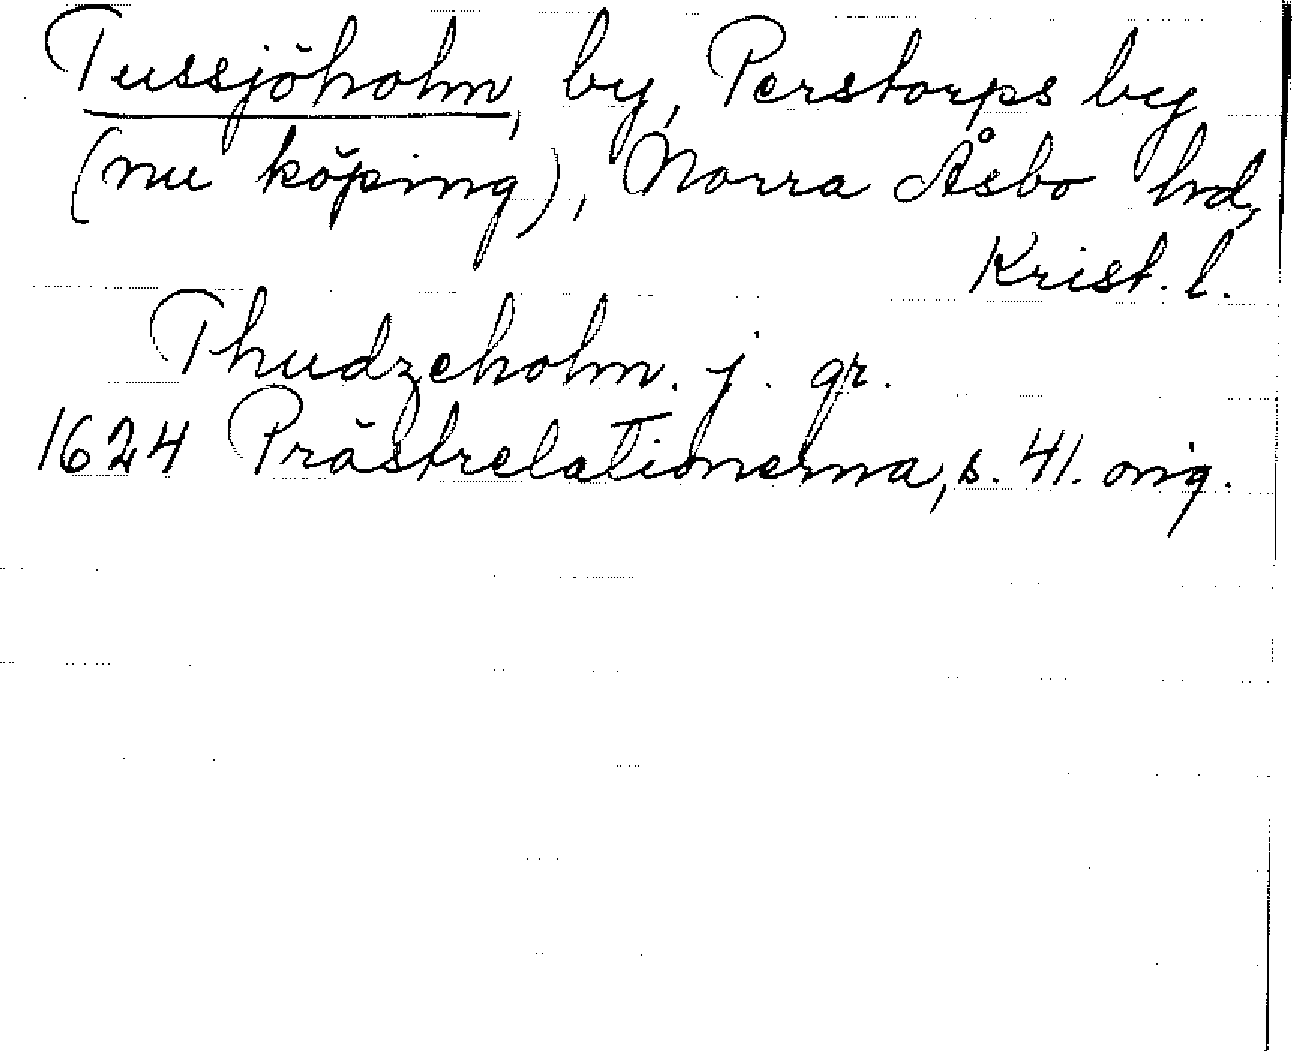 Tussjöholm, by, Perstorps by
(nu köping), Norra Åsbo hd,
Krist. l.
Thudzeholm. j. gr.
1624 Prästrelationerna, s. 41. orig.